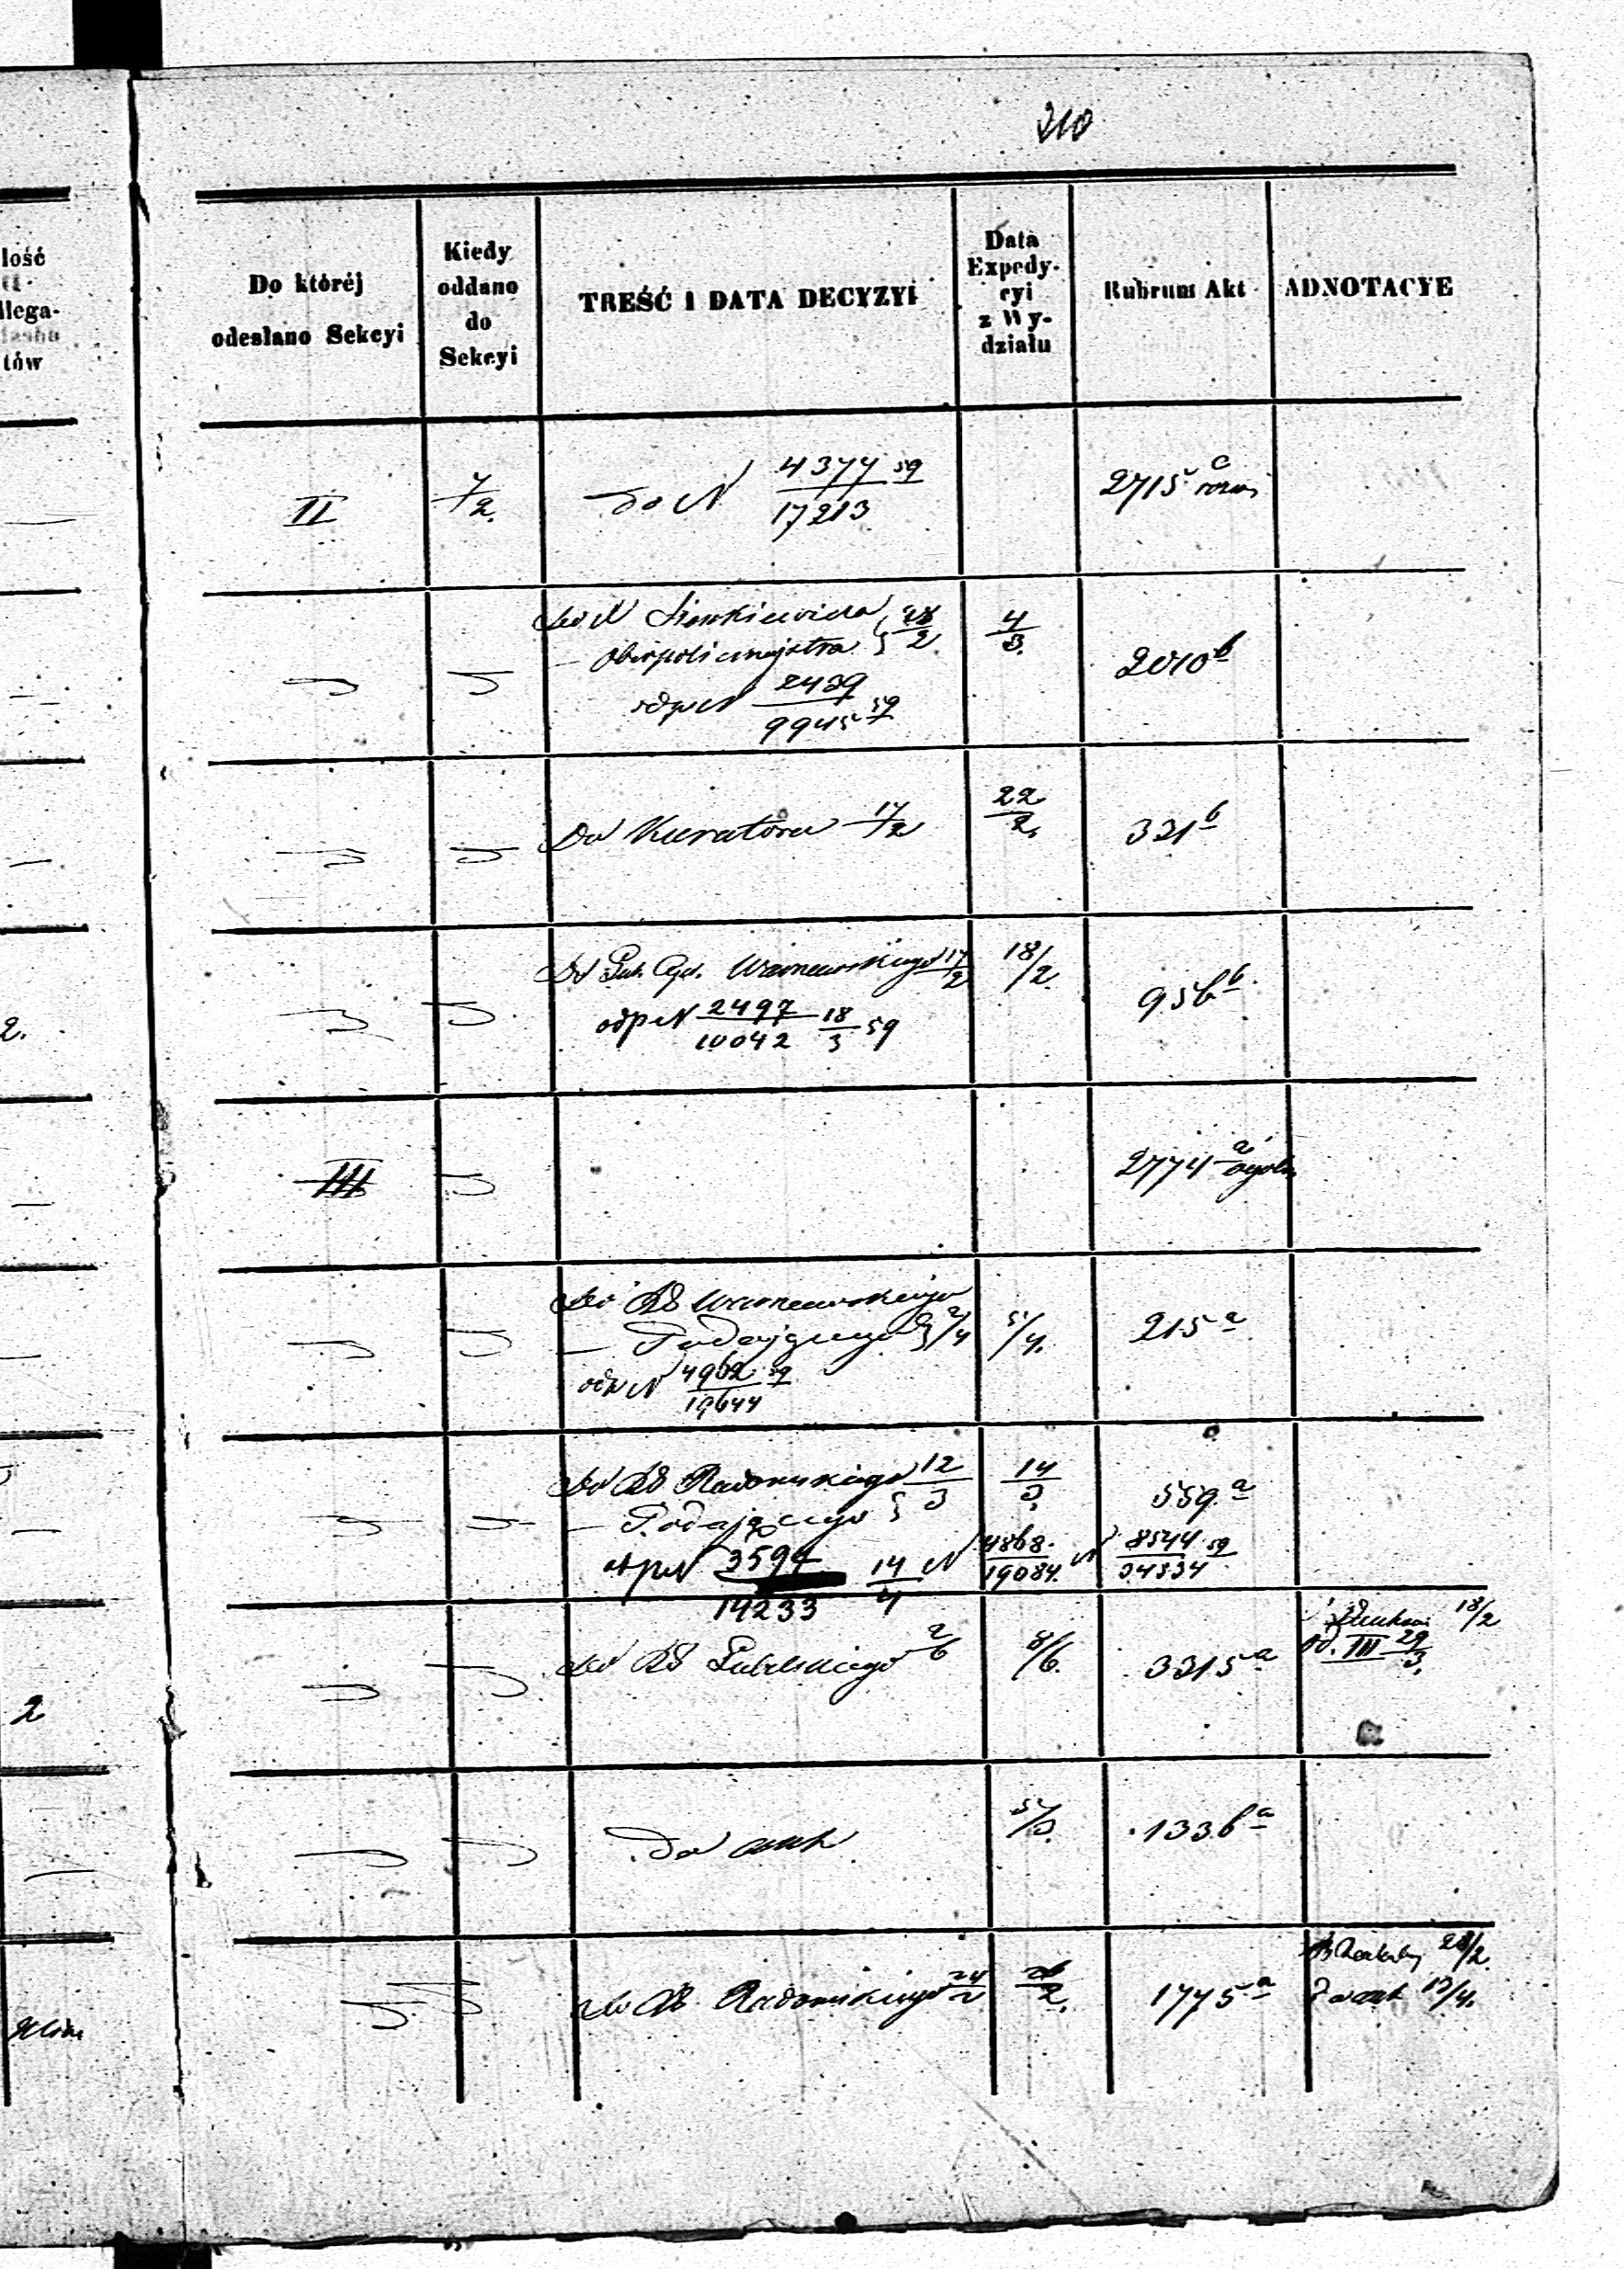 210
lość
llega-
tów
Do któréj
odesłano Sekcyi
Kiedy
oddano
do
Sekcyi
TREŚĆ I DATA DECYZYI
Data
Expedy-
cyi
z Wy-
działu
Rubrum Akt
ADNOTACYE
II
7/2.
do N 4377/17213 59
2715 c
Oberpolicmajstra 28/2
odp N 2439/9945 59
4/3.
2010 b
Do Kuratora 17/2
22/2.
321 b
2.
Warszawskiego 17/2
odp N 2497/10042 18/3 59
18/2
956 b
III
2774 a
Do RG Warszawskiego
— Podającego 2/4
odp N 4962/19644 59
5/4.
215 a
Do RG Radomskiego 12/3
— Podającego
odp N 3594/14233 14/4 N 4868/19084. N 8544/34334 59
14/3
559 a
2
Do RG Lubelskiego 2/6
8/6.
3315 a
18/2
od. III 29/3.
Do akt
5/3.
1336 a
Do RG Radomskiego 24/2
26/2.
1775 a
28/2.
Do akt 13/4.